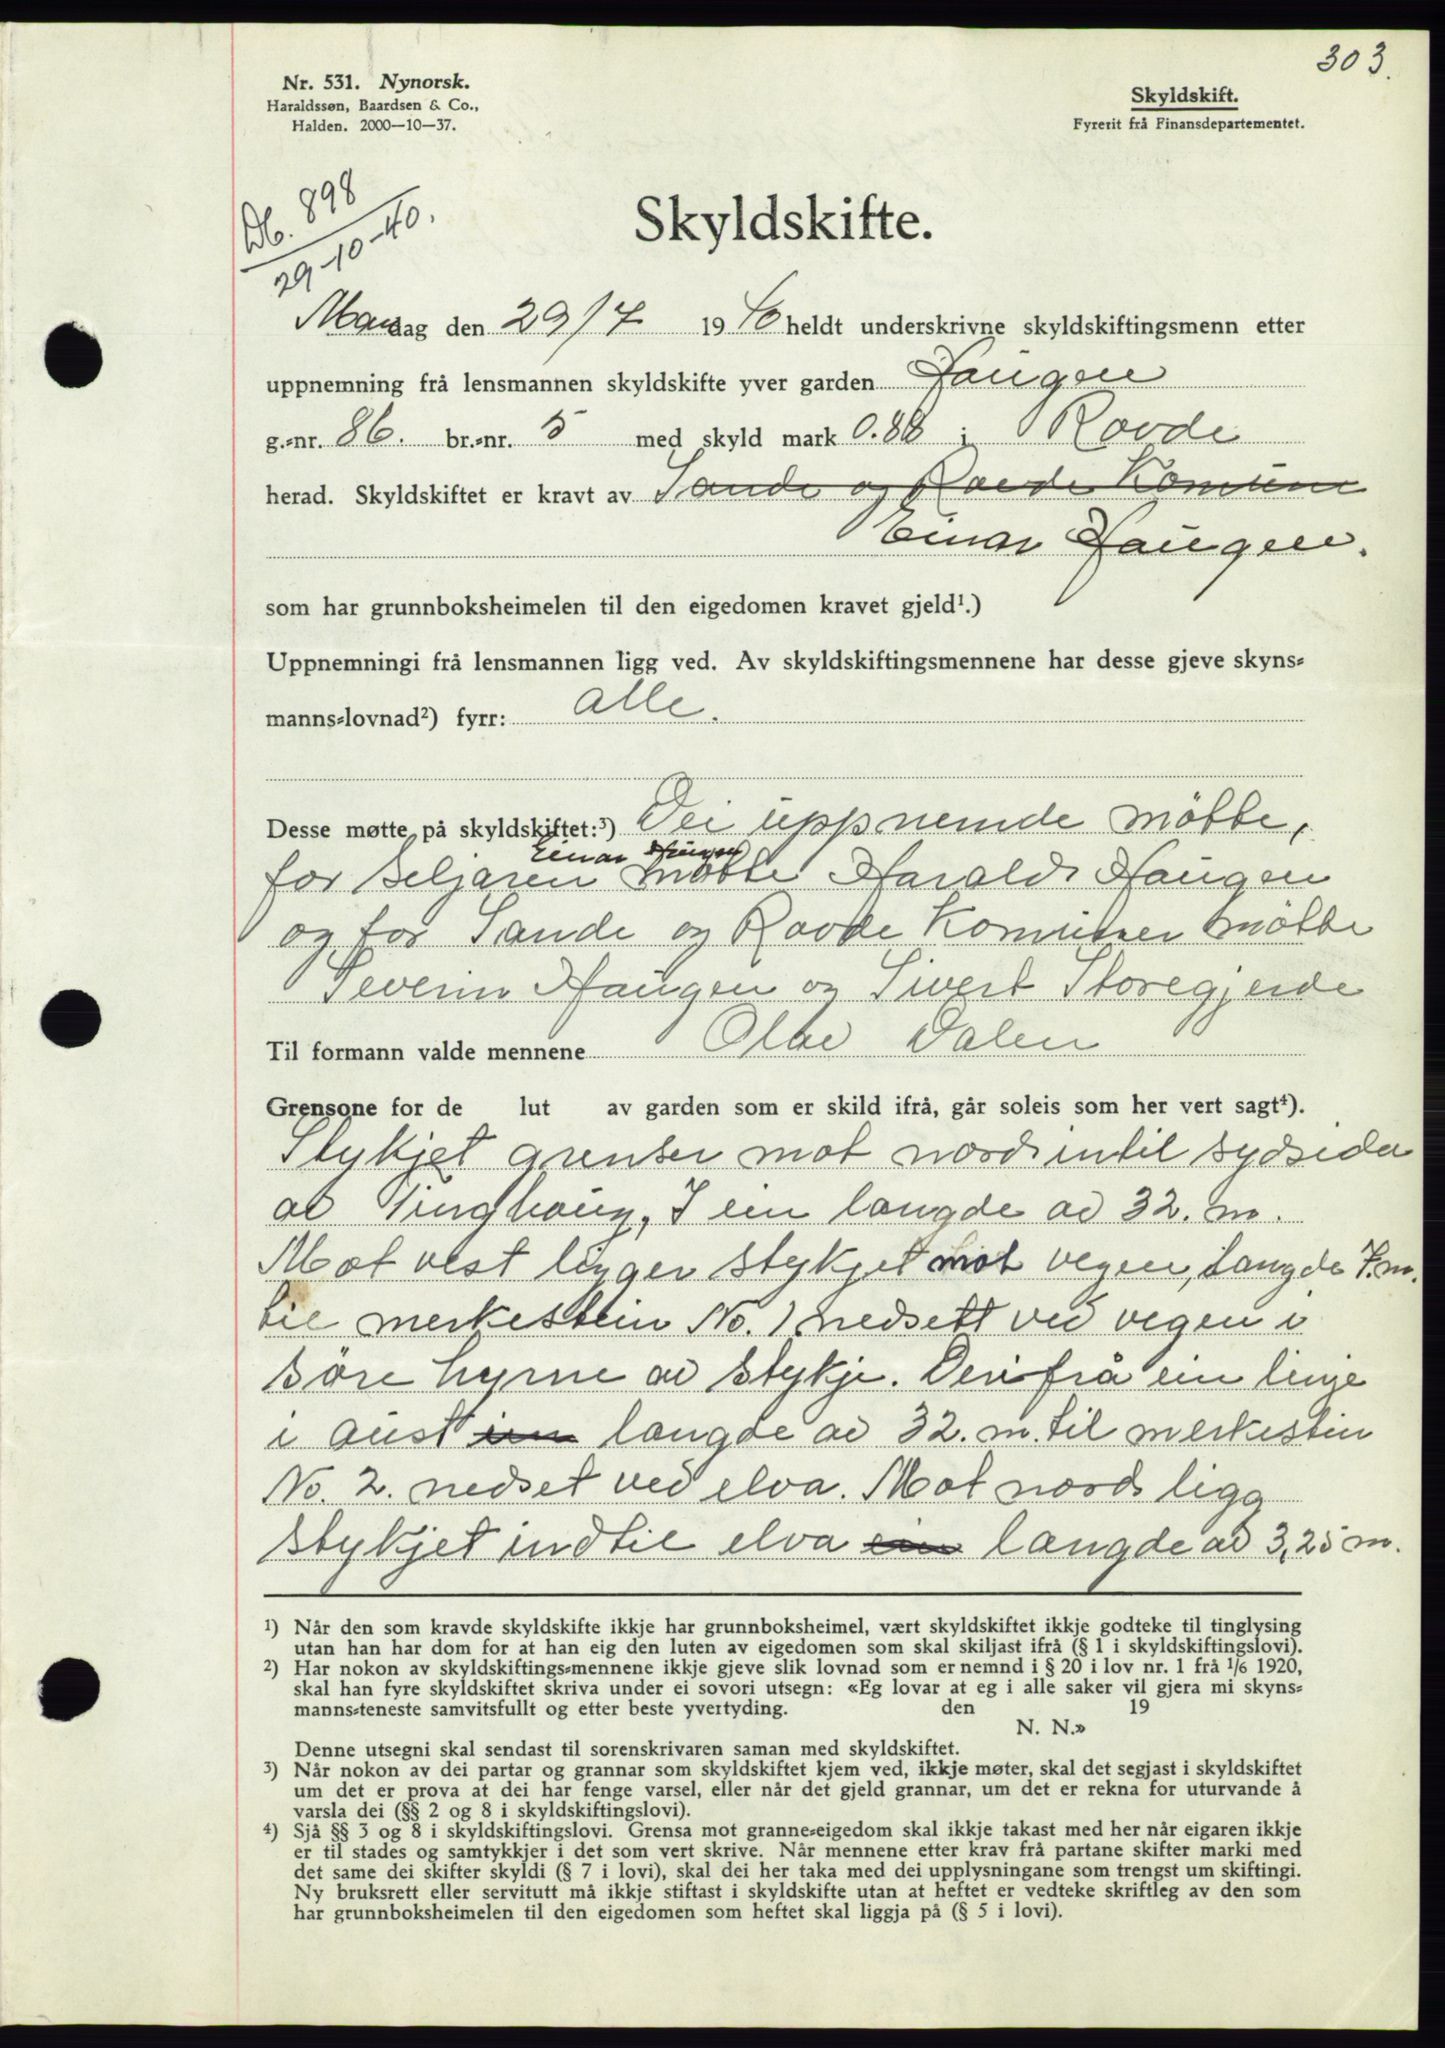 303.
Nr. 531. Nynorsk.
Haraldssøn, Baardsen & Co.,
Halden. 2000—10—37.
Skyldskift.
Fyrerit frå Finansdepartementet.
Db. 898
29-10-40.
Skyldskifte.
Mandag den 29/7 1940 heldt underskrivne skyldskiftingsmenn etter
uppnemning frå lensmannen skyldskifte yver garden Haugen
g.-nr. 86. br.-nr. 5 med skyld mark 0.88 i Rovde
herad. Skyldskiftet er kravt av Sande og Rovde Komune
Einar Haugen.
som har grunnboksheimelen til den eigedomen kravet gjeld¹.)
Uppnemningi frå lensmannen ligg ved. Av skyldskiftingsmennene har desse gjeve skyns-
manns-lovnad²) fyrr: alle.
Desse møtte på skyldskiftet:³) Dei uppnemde mötte,
Einar Haugen
for seljaren mötte Harald Haugen
og for Sande og Rovde Komuner mötte
Severin Haugen og Sivert Storegjerde
Til formann valde mennene Olav Dalen
Grensone for de lut av garden som er skild ifrå, går soleis som her vert sagt⁴).
Stykjet grenser mot nord intil sydsida
av Tinghaug, I ein langde av 32. m.
Mot vest ligger stykjet mot vegen, langde 7. m.
til merkestein No. 1 nedsett ved vegen i
söre hyrne av stykje. Derifrå ein linje
i aust ein langde av 32. m. til merkestin
No. 2. nedset ved elva. Mot nord ligg
stykjet indtil elva ein langde av 3,25 m.
¹) Når den som kravde skyldskifte ikkje har grunnboksheimel, vært skyldskiftet ikkje godteke til tinglysing
utan han har dom for at han eig den luten av eigedomen som skal skiljast ifrå (§ 1 i skyldskiftingslovi).
²) Har nokon av skyldskiftings-mennene ikkje gjeve slik lovnad som er nemnd i § 20 i lov nr. 1 frå 1/6 1920,
skal han fyre skyldskiftet skriva under ei sovori utsegn: «Eg lovar at eg i alle saker vil gjera mi skyns-
manns-teneste samvitsfullt og etter beste yvertyding. den 19
N. N.»
Denne utsegni skal sendast til sorenskrivaren saman med skyldskiftet.
³) Når nokon av dei partar og grannar som skyldskiftet kjem ved, ikkje møter, skal det segjast i skyldskiftet
um det er prova at dei har fenge varsel, eller når det gjeld grannar, um det er rekna for uturvande å
varsla dei (§§ 2 og 8 i skyldskiftingslovi).
⁴) Sjå §§ 3 og 8 i skyldskiftingslovi. Grensa mot granne-eigedom skal ikkje takast med her når eigaren ikkje
er til stades og samtykkjer i det som vert skrive. Når mennene etter krav frå partane skifter marki med
det same dei skifter skyldi (§ 7 i lovi), skal dei her taka med dei upplysningane som trengst um skiftingi.
Ny bruksrett eller servitutt må ikkje stiftast i skyldskifte utan at heftet er vedteke skriftleg av den som
har grunnboksheimelen til den eigedomen som heftet skal liggja på (§ 5 i lovi).